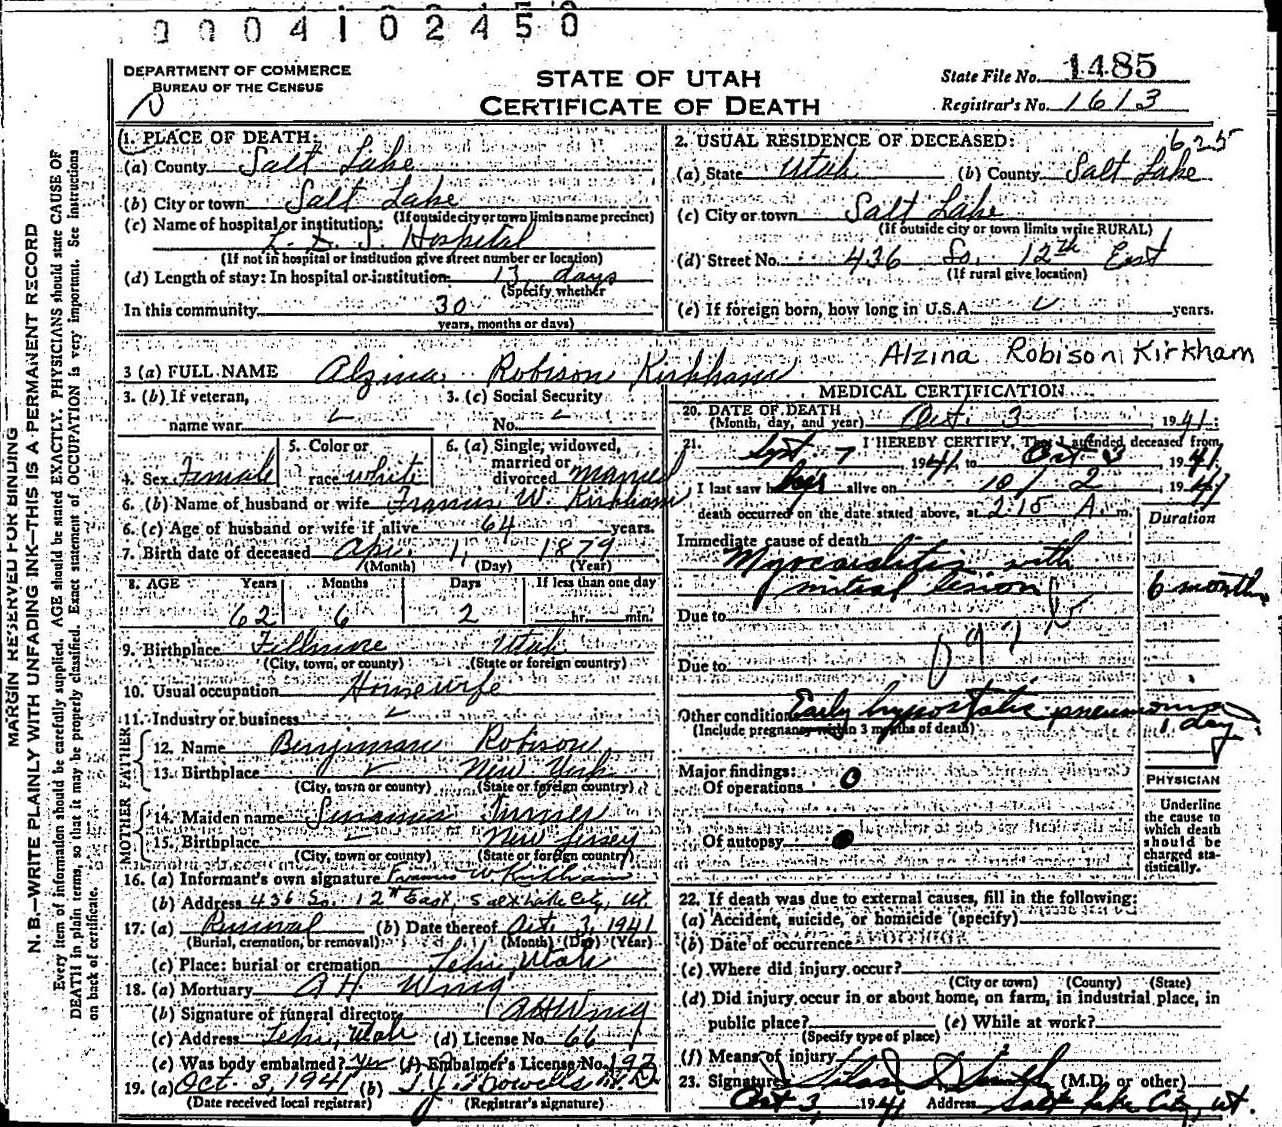 0004102450
DEPARTMENT OF COMMERCE
BUREAU OF THE CENSUS
STATE OF UTAH
CERTIFICATE OF DEATH
State File No. 1485
Registrar's No. 1613
1. PLACE OF DEATH:
(a) County Salt Lake
(b) City or town Salt Lake
(If outside city or town limits name precinct)
(c) Name of hospital or institution:
L. D. S. Hospital
(If not in hospital or institution give street number or location)
(d) Length of stay: In hospital or institution 13 days
(Specify whether
In this community 30
years, months or days)
2. USUAL RESIDENCE OF DECEASED: 625
(a) State Utah (b) County Salt Lake
(c) City or town Salt Lake
(If outside city or town limits write RURAL)
(d) Street No. 436 So. 12th East
(If rural give location)
(e) If foreign born, how long in U.S.A. years.
3 (a) FULL NAME Alzina Robison Kirkham
Alzina Robison Kirkham
3. (b) If veteran, name war
3. (c) Social Security No.
4. Sex Female
5. Color or race white
6. (a) Single, widowed, married or divorced married
6. (b) Name of husband or wife Francis W. Kirkham
6. (c) Age of husband or wife if alive 64 years.
7. Birth date of deceased Apr. 1, 1879
(Month) (Day) (Year)
8. AGE Years Months Days If less than one day
62 6 2 hr. min.
9. Birthplace Fillmore Utah
(City, town, or county) (State or foreign country)
10. Usual occupation Housewife
11. Industry or business
FATHER
12. Name Benjiman Robison
13. Birthplace New York
(City, town or county) (State or foreign country)
MOTHER
14. Maiden name Turner
15. Birthplace New Jersey
(City, town or county) (State or foreign country)
16. (a) Informant's own signature Francis W Kirkham
(b) Address 436 So. 12th East, Salt Lake City, Ut.
17. (a) Removal (b) Date thereof Oct. 3, 1941
(Burial, cremation, or removal) (Month) (Day) (Year)
(c) Place: burial or cremation Lehi, Utah
18. (a) Mortuary A H Wing
(b) Signature of funeral director A H Wing
(c) Address Lehi, Utah (d) License No. 66
(e) Was body embalmed? Yes (f) Embalmer's License No. 193
19. (a) Oct. 3, 1941 (b) M. D.
(Date received local registrar) (Registrar's signature)
MEDICAL CERTIFICATION
20. DATE OF DEATH
(Month, day, and year) Oct. 3 1941
21. I HEREBY CERTIFY, That I attended deceased from
Sept 7 1941 to Oct 3 1941
I last saw her alive on 10/2, 1941
death occurred on the date stated above, at 2:15 A. m.
Duration
Immediate cause of death
Myocarditis with
mitral lesion 6 months
Due to
Due to
Other conditions Early hypostatic pneumonia 1 day
(Include pregnancy within 3 months of death)
Major findings:
Of operations 0
Of autopsy 0
PHYSICIAN
Underline
the cause to
which death
should be
charged sta-
tistically.
22. If death was due to external causes, fill in the following:
(a) Accident, suicide, or homicide (specify)
(b) Date of occurrence
(c) Where did injury occur?
(City or town) (County) (State)
(d) Did injury occur in or about home, on farm, in industrial place, in
public place? (e) While at work?
(Specify type of place)
(f) Means of injury
23. Signature Silas S. Smith (M.D. or other)
Oct 3, 1941 Address Salt Lake City, Ut.
MARGIN RESERVED FOR BINDING
N. B.—WRITE PLAINLY WITH UNFADING INK—THIS IS A PERMANENT RECORD
Every item of information should be carefully supplied. AGE should be stated EXACTLY. PHYSICIANS should state CAUSE OF
DEATH in plain terms, so that it may be properly classified. Exact statement of OCCUPATION is very important. See instructions
on back of certificate.